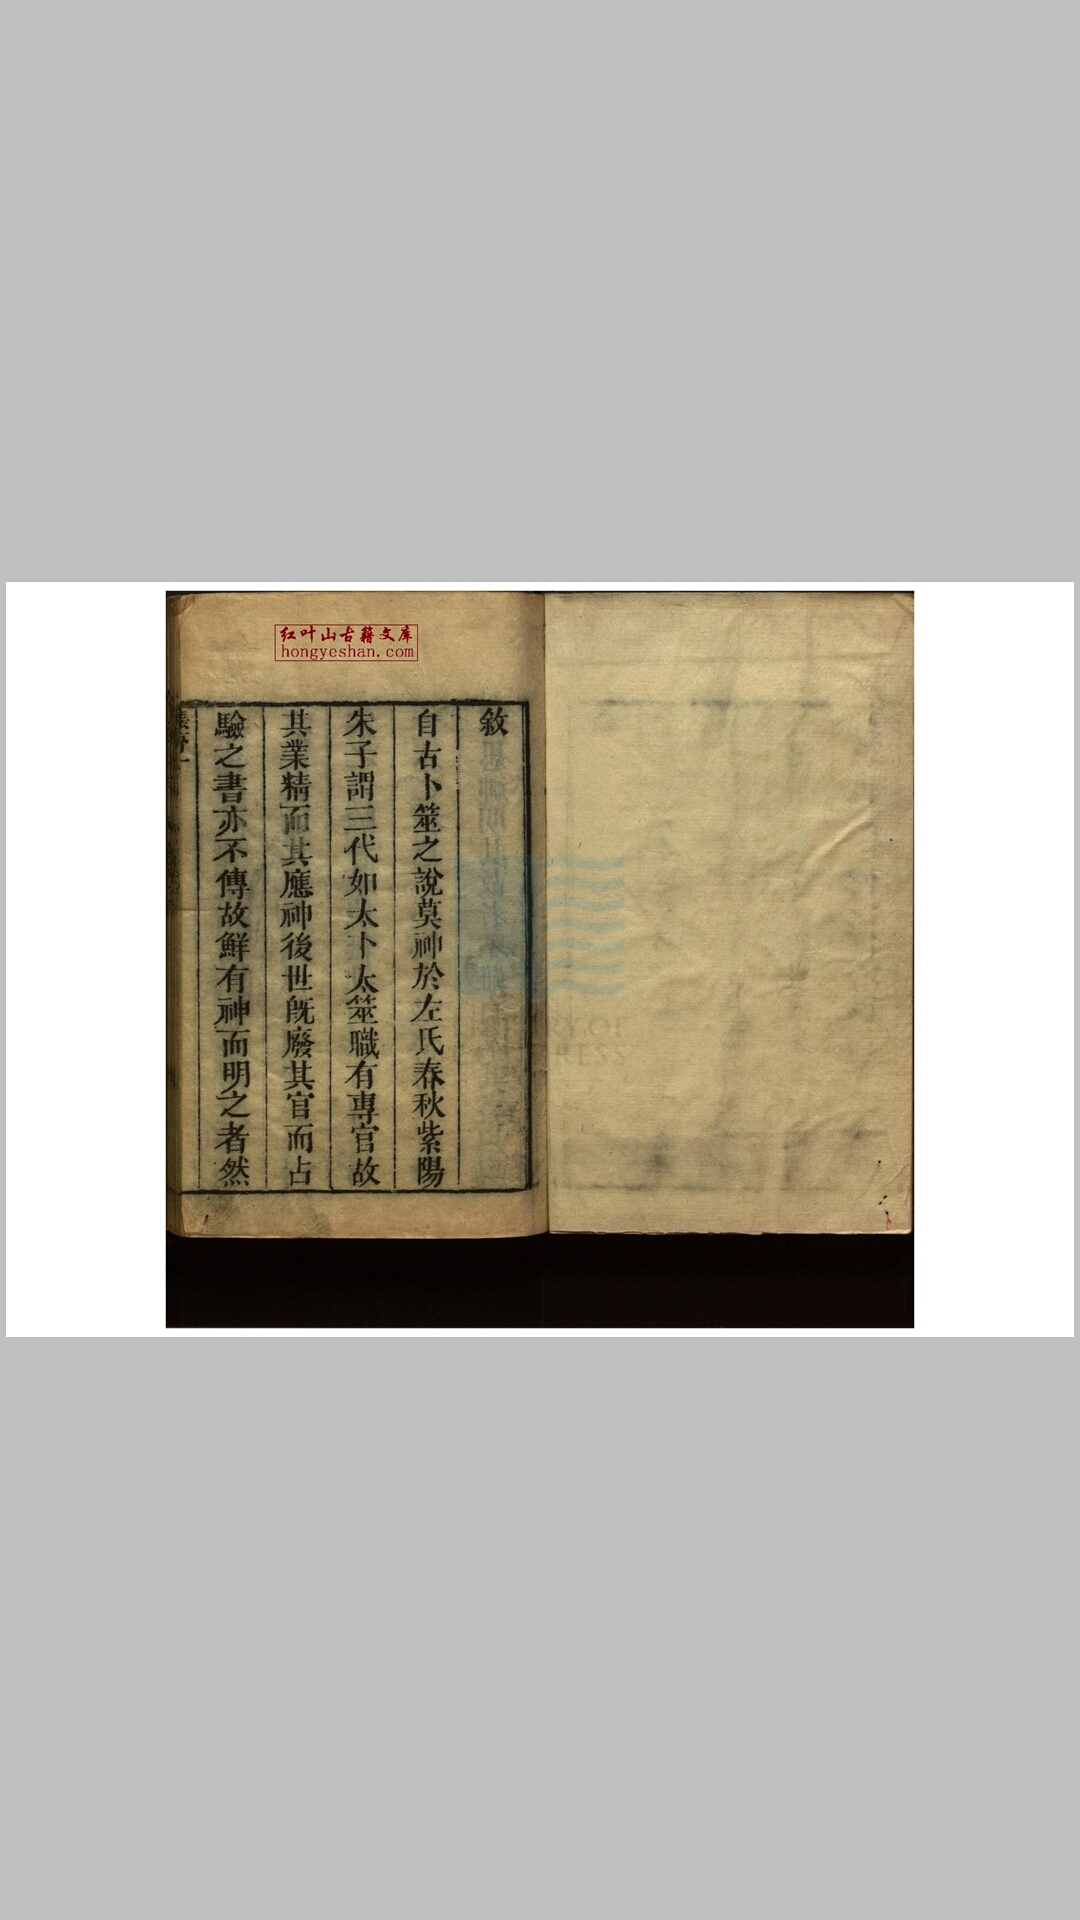 红叶山古籍文库
hongyeshan.com
敘
自古卜筮之說莫神於左氏春秋紫陽
朱子謂三代如太卜太筮職有專官故
其業精而其應神後世旣廢其官而占
驗之書亦不傳故鮮有神而明之者然